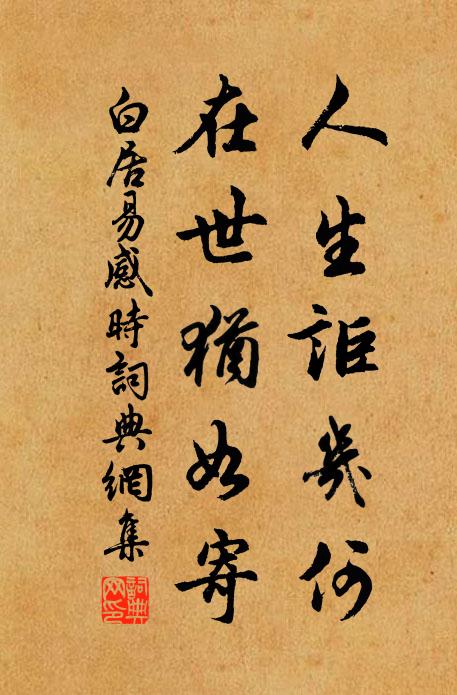 人生詎幾何
在世猶如寄
白居易感時詞典網集
詞典網印